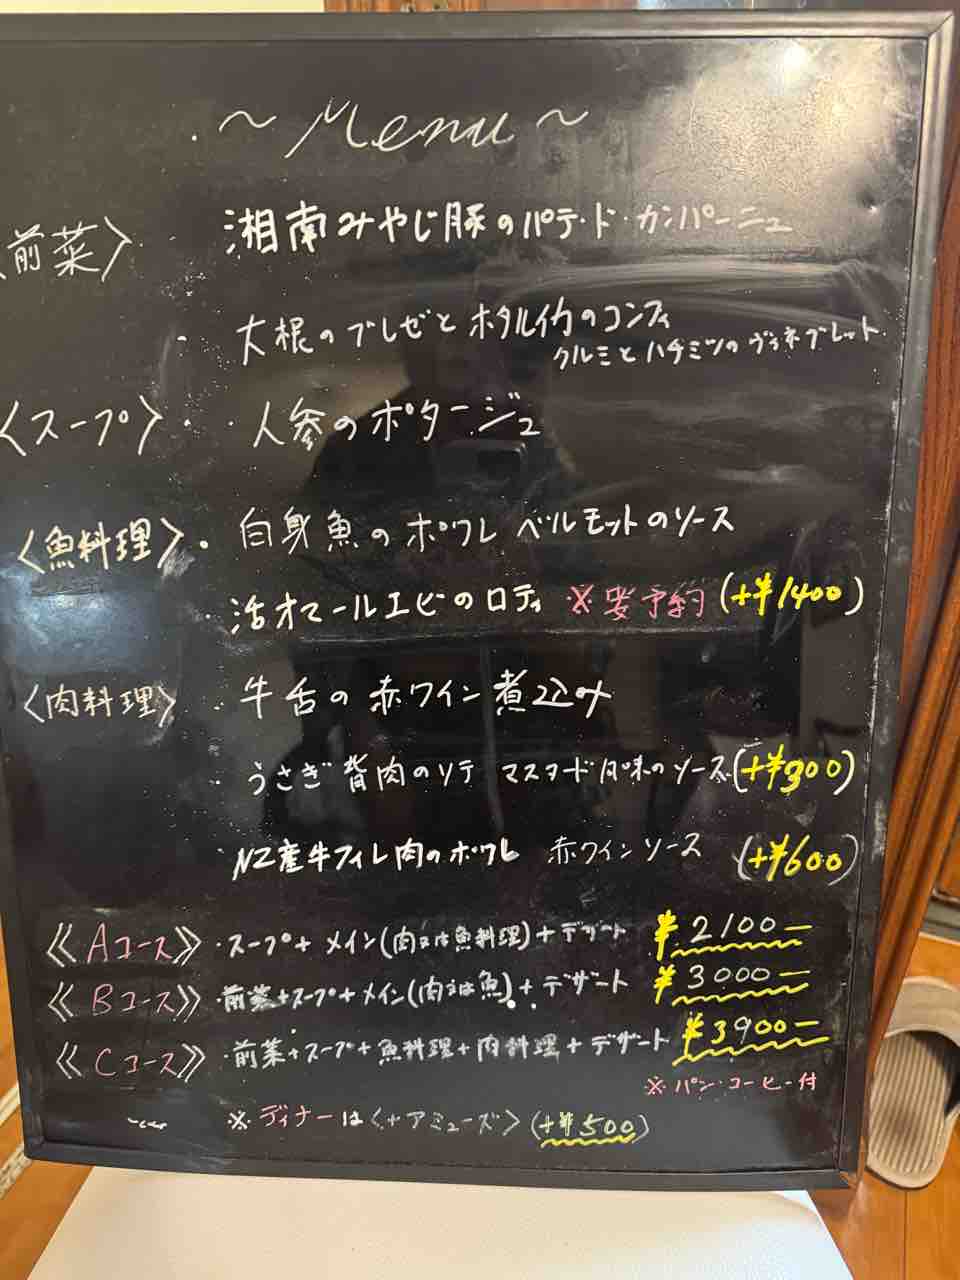 ~ Menu ~
〈前菜〉 湘南みやじ豚のパテ・ド・カンパーニュ
大根のブレゼとホタルイカのコンフィ
クルミとハチミツのヴィネグレット
〈スープ〉 人参のポタージュ
〈魚料理〉 白身魚のポワレ ベルモットのソース
活オマールエビのロティ ※要予約 (+¥1400)
〈肉料理〉 牛舌の赤ワイン煮込み
うさぎ背肉のソテ マスタード風味のソース (+¥300)
NZ産牛フィレ肉のポワレ 赤ワインソース (+¥600)
《Aコース》・スープ+メイン(肉又は魚料理)+デザート ¥2100ー
《Bコース》・前菜+スープ+メイン(肉又は魚)+デザート ¥3000ー
《Cコース》・前菜+スープ+魚料理+肉料理+デザート ¥3900ー
※パン・コーヒー付
※ディナーは〈+アミューズ〉(+¥500)